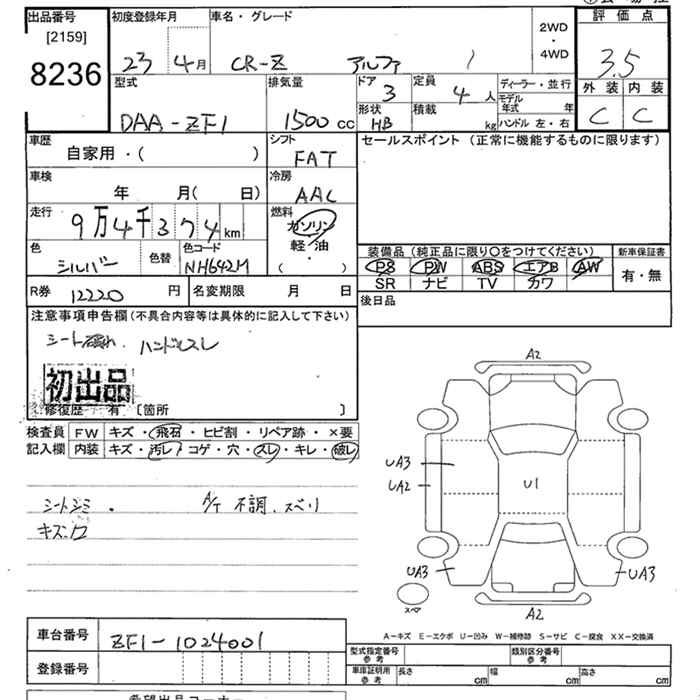 出品番号 初度登録年月 車名・グレード 評価点
[2159] 2WD
8236 23 4月 CR-Z アルファ ・ 3.5
4WD
型式 排気量 ドア 定員 ディーラー・並行 外装 内装
3 4人 モデル年式 年
DAA-ZF1 1500cc 形状 HB 積載 kg ハンドル 左・右 C C
車歴 シフト セールスポイント (正常に機能するものに限ります)
自家用・( ) FAT
車検 冷房
年 月( 日) AAC
走行 燃料
9万4千374km ガソリン
軽・油
色 色替 色コード ・ 装備品 (純正品に限り〇をつけてください) 新車保証書
シルバー NH642M ( ) PS PW ABS エアB AW 有・無
SR ナビ TV カワ
R券 12220円 名変期限 月 日 後日品
注意事項申告欄(不具合内容等は具体的に記入して下さい)
シート破れ ハンドルスレ
初出品
修復歴 有 [箇所 ]
検査員 FW キズ・飛石・ヒビ割・リペア跡・×要
記入欄 内装 キズ・汚レ・コゲ・穴・スレ・キレ・破レ
シートシミ . A/T 不調.スベリ
A2
UA3
UA2 U1
UA3 UA3
スペア
A2
A-キズ E-エクボ U-凹み W-補修跡 S-サビ C-腐食 XX-交換済
車台番号 ZF1-1024001
型式指定番号 参考 類別区分番号 参考
登録番号 車庫証明用 参考 長さ cm 幅 cm 高さ cm
希望出品コーナー